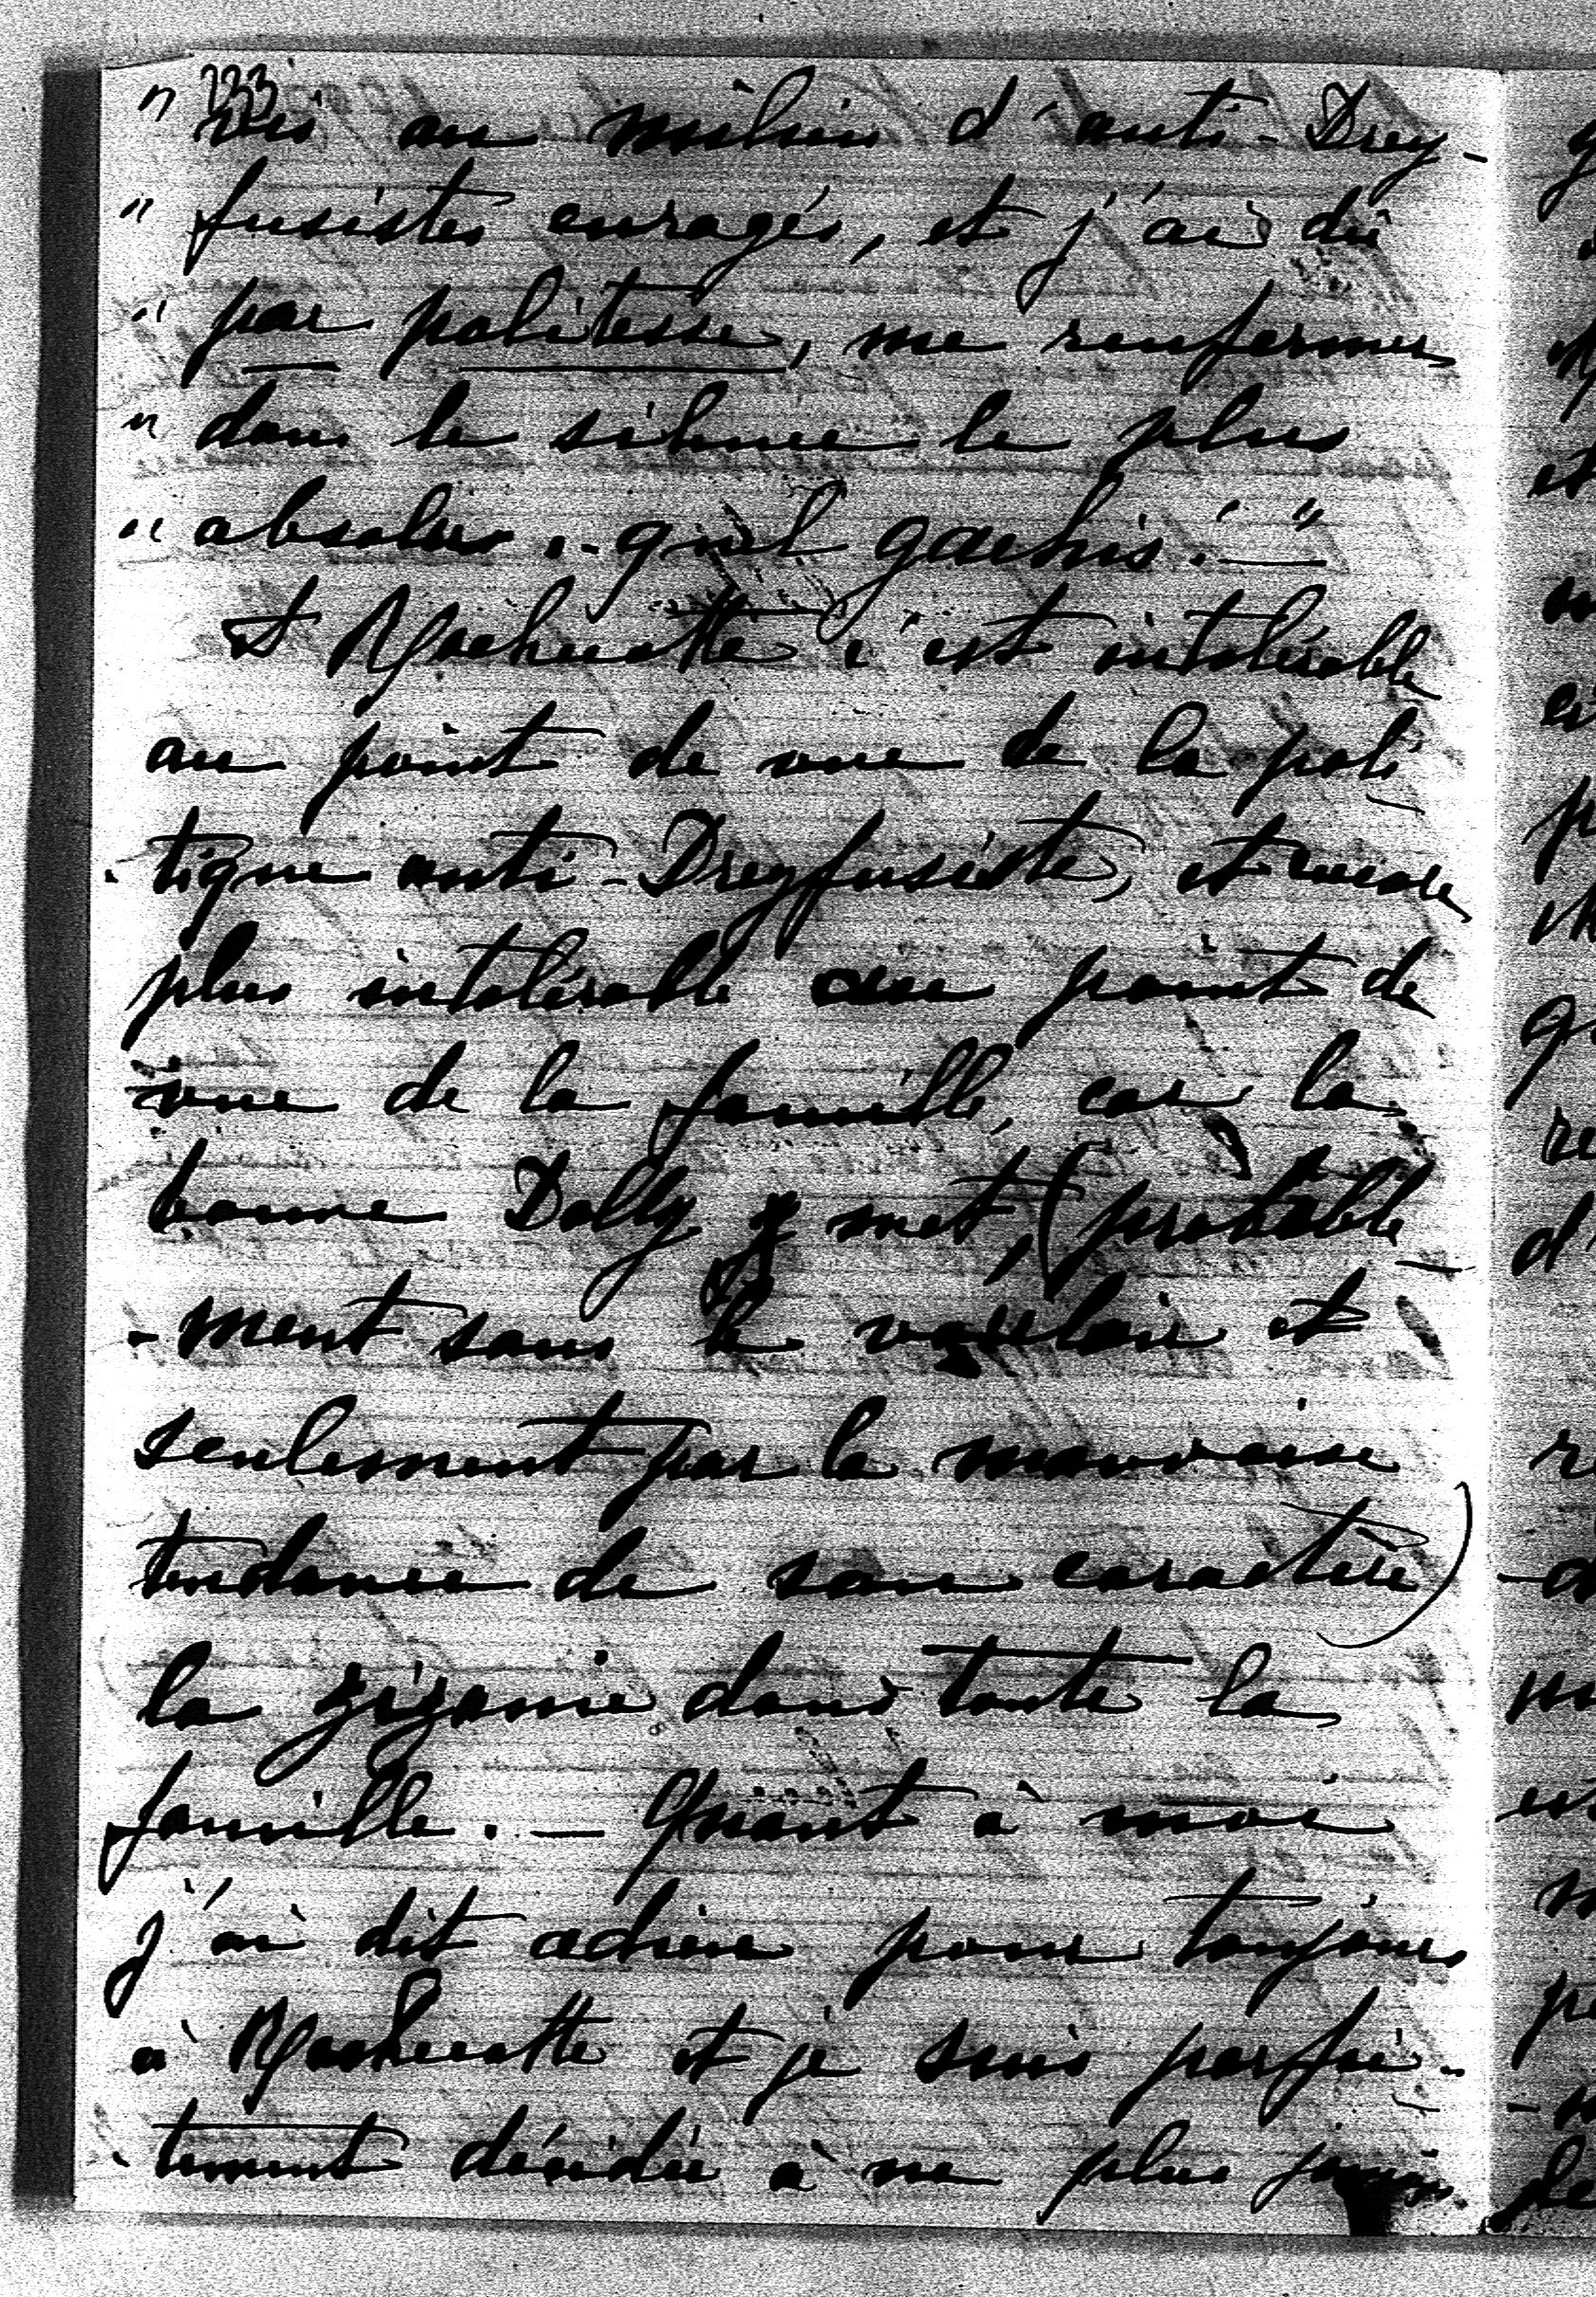 133
" vis au milieu d'anti-Drey-
" fusistes enragés, et j'ai dû
" par politesse, me renfermer
" dans le silence le plus
" absolu .. quel gachis! — "
à Rochecotte c'est intolérable
au point de vue de la poli
- tique anti-Dreyfusiste, et encore
plus intolérable au point de
vue de la famille, car la
bonne Dolly y met, (probable-
- ment sans le vouloir et
seulement par la mauvaise
tendance de son caractère)
la zizanie dans toute la
famille. — Quant à moi
j'ai dit adieu pour toujours
à Rochecotte et je suis parfai-
- tement décidée à ne plus jamais